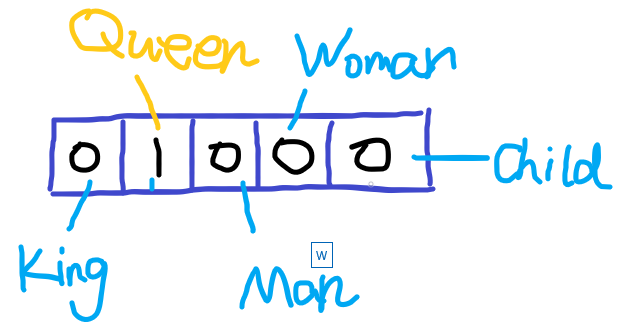 Queen
Woman
0 1 0 0 0
Child
King
Man
W